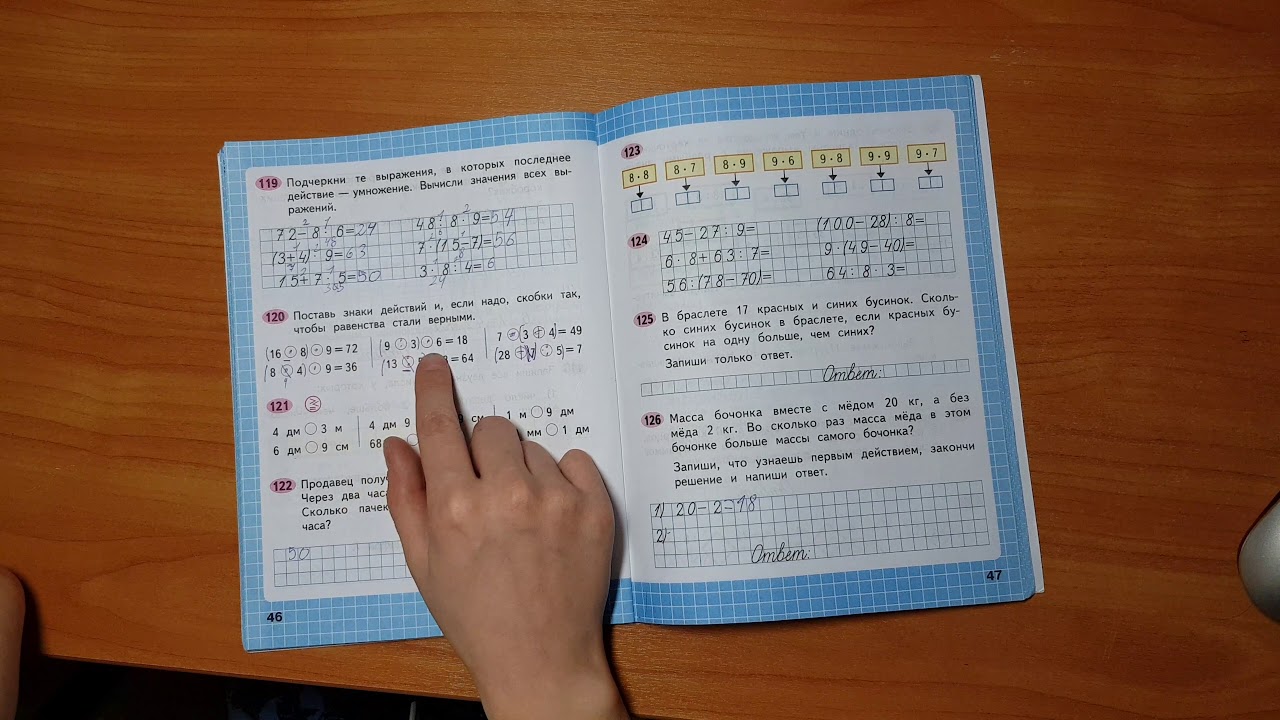 119 Подчеркни те выражения, в которых последнее
действие — умножение. Вычисли значения всех вы-
ражений.
72-8·6=24 48:8·9=54
(3+4)·9=63 7·(15-7)=56
15+7·5=50 3·8:4=6
120 Поставь знаки действий и, если надо, скобки так,
чтобы равенства стали верными.
(16 : 8) · 9 = 72 (9 : 3) · 6 = 18 7 · (3 + 4) = 49
(8 4) · 9 = 36 (13 = 64 (28 + 7) : 5) = 7
121
4 дм 3 м 4 дм 9 см 1 м 9 дм
6 дм 9 см 68 мм 1 дм
122 Продавец
Через два
Сколько
часа?
50
46
123
8·8 8·7 8·9 9·6 9·8 9·9 9·7
124 45-27:9= (100-28):8=
6·8+63:7= 9·(49-40)=
56:(78-70)= 64:8·3=
125 В браслете 17 красных и синих бусинок. Сколь-
ко синих бусинок в браслете, если красных бу-
синок на одну больше, чем синих?
Запиши только ответ.
Ответ:
126 Масса бочонка вместе с мёдом 20 кг, а без
мёда 2 кг. Во сколько раз масса мёда в этом
бочонке больше массы самого бочонка?
Запиши, что узнаешь первым действием, закончи
решение и напиши ответ.
1) 20-2=18
2)
Ответ:
47